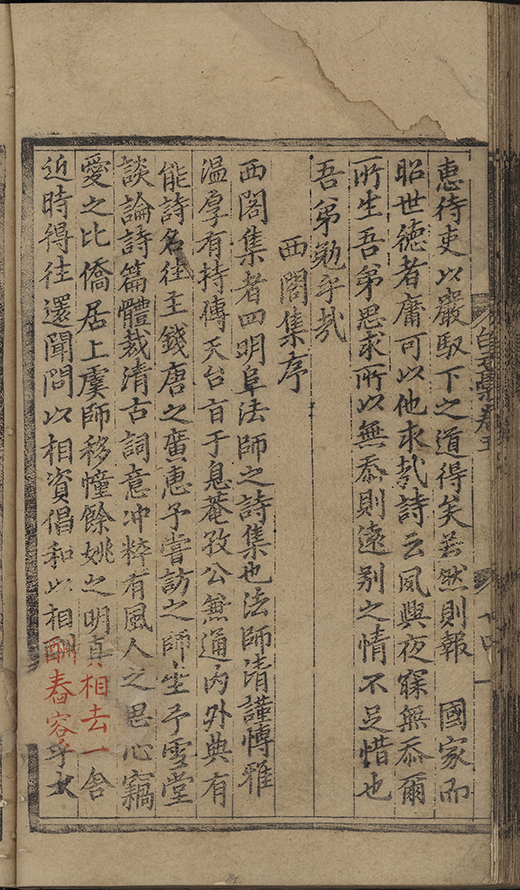 惠待吏以嚴馭下之道得矣若然則報　國家而
昭世德者庸可以他求㢤詩云夙興夜寐無忝爾
所生吾弟思求所以無忝則遠別之情不足惜也
吾弟勉乎㢤
西閣集序
西閣集者四明阜法師之詩集也法師清謹愽雅
温厚有持傳天台㫖于息菴孜公兼通内外典有
能詩名往主錢唐之廣惠予嘗訪之師坐予雪堂
談論詩篇體裁清古詞意冲粹有風人之思心竊
愛之比僑居上虞師移幢餘姚之明真相去一舍
近時得往還聞問以相資倡和以相酬舂容乎大